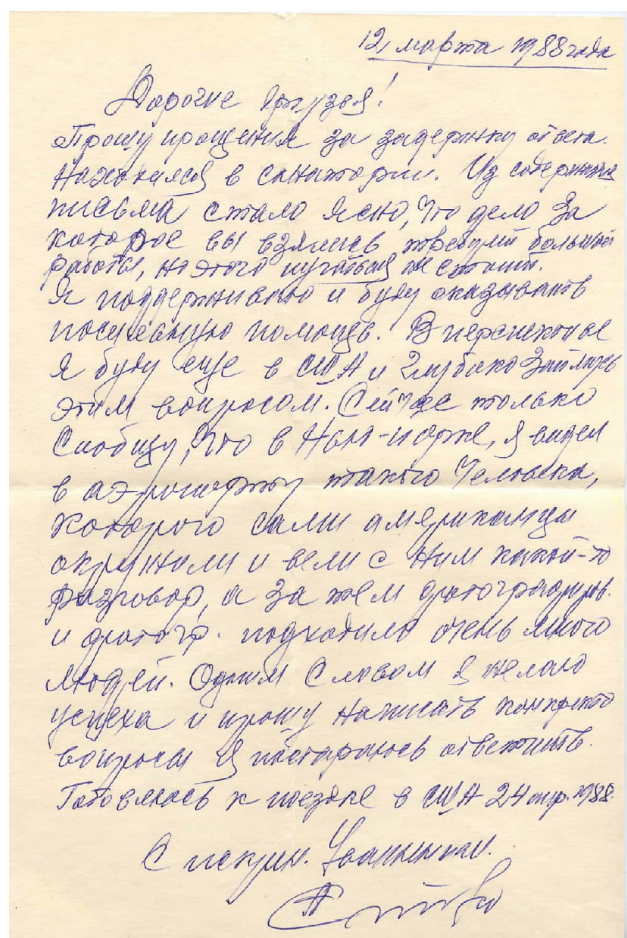 12 марта 1988 года
Дорогие друзья!
Прошу прощения за задержку ответа.
Находился в санатории. Из содержания
письма стало ясно, что дело за
которое вы взялись требует большой
работы, но этого пугаться не стоит.
Я поддерживаю и буду оказывать
посильную помощь. В перспективе
я буду еще в США и глубоко займусь
этим вопросом. Сейчас только
сообщу, что в Нью-Йорке, я видел
в аэропорту такого человека,
которого сами американцы
окружили и вели с ним какой-то
разговор, а за тем фотографиров.
и фотогр. подходило очень много
людей. Одним словом я желаю
успеха и прошу написать конкретно
вопросы я постараюсь ответить.
Готовлюсь к поездке в США 24 апр. 1988.
С искрен.